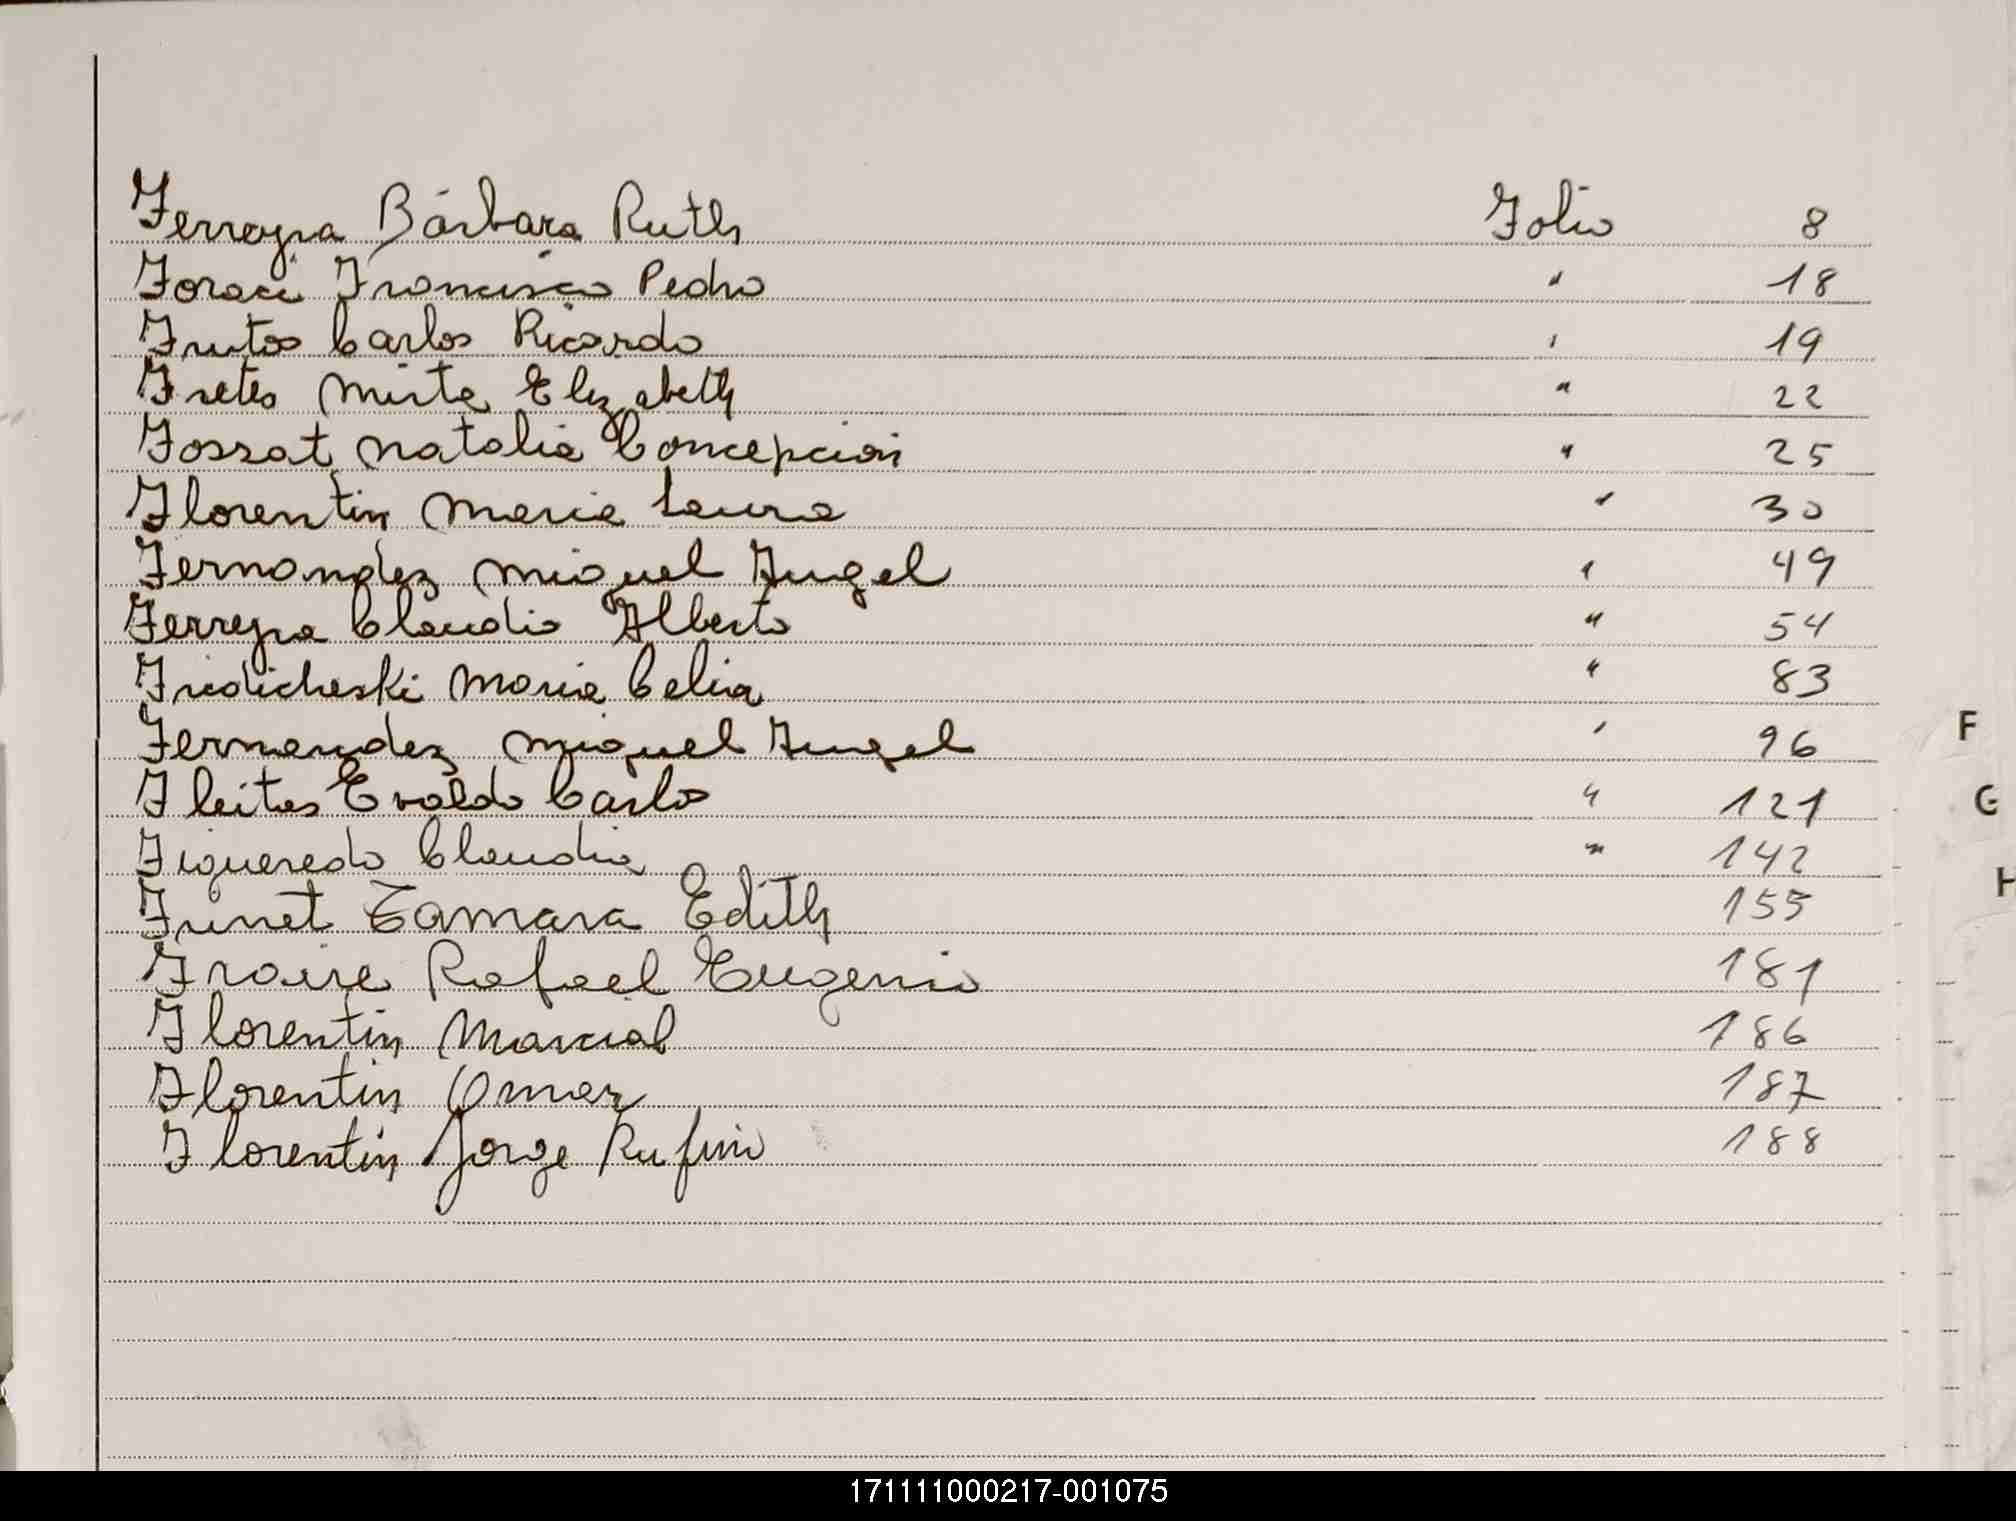 Ferreyra Bárbara Ruth Folio 8
Foraci Francisco Pedro " 18
Frutos Carlos Ricardo " 19
Fretes Mirta Elizabeth " 22
Fossat Natalia Concepcion " 25
Florentin Maria Laura " 30
Fernandez Miguel Angel " 49
Ferreyra Claudio Alberto " 54
Fridicheski Maria Celia " 83
Fernandez Miguel Angel " 96
F
Fleitas Evaldo Carlo " 121
G
Figueredo Claudia " 142
H
Funet Tamara Edith 155
Fraire Rafael Eugenio 181
Florentin Marcial 186
Florentin Omar 187
Florentin Jorge Rufino 188
171111000217-001075